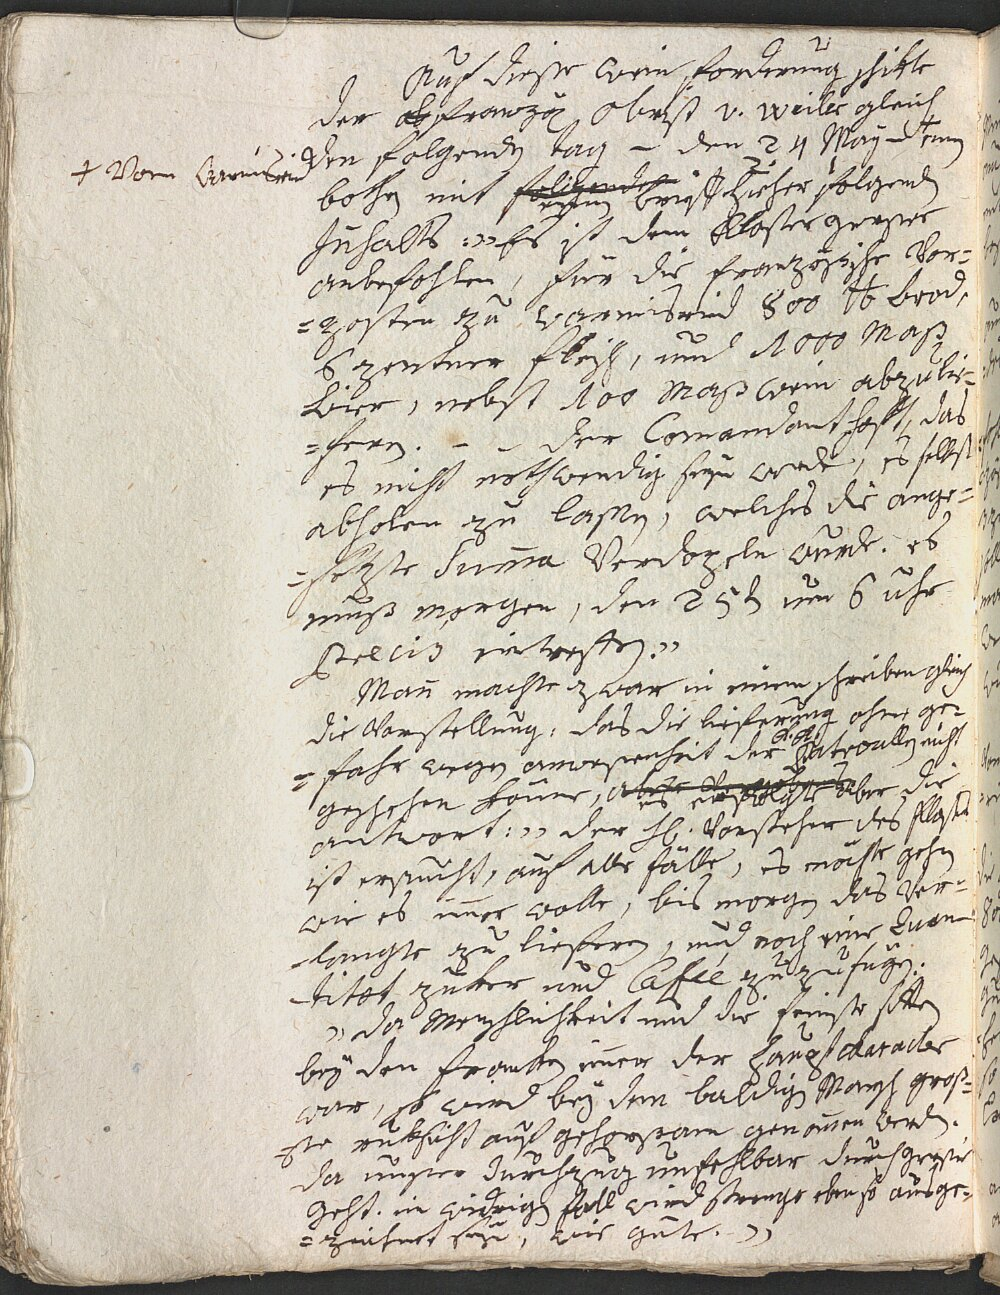 Auf diesse wein forderung schikte
der französ Obrist v. Weiler gleich
den folgenden tag – den 24 May – einen
+ Vom Varmisried
bothen mit einem brieff Zieher folgenden
Inhalts: „Es ist dem Kloster
anbefohlen, für die französische Vor=
=posten zu Varmisried 800 ℔ brod,
6 zentner fleisch, und 1000 Maß
bier, nebst 100 Maß wein abzulie=
=fern. – – der Comandant hofft, das
es nicht nothwendig seyn werde, es selbst
abholen zu lassen, welches die ange=
=setzte Summa Verdopeln wurde. es
muß morgen, den 25t um 6 uhr
precis eintreffen.„
Man machte zwar in einem schreiben gleich
die Vorstellung, das die lieferung ohne ge=
=fahr wegen anwesenheit der k. k. Patroullen nicht
geschehen könne, es erfolgte aber die
antwort: „der H. Vorsteher des Klosters
ist ersucht, auf alle fälle, es möchte gehen
wie es immer wolle, bis morgen das Ver=
=langte zu liefern, und noch eine Quan=
titet zuker und Caffee zuzufügen.
„da Menschlichkeit und die feinste sitten
bey den Franken immer der Hauptcharacter
war, so wird bey dem baldigen Marsch groß=
=te ruksicht auf gehorsam genomen werden.
da unser durchzug unfehlbar durch
geht. im widrigen fall wird strenge eben so ausge=
=zeichnet seyn, wie güte.„